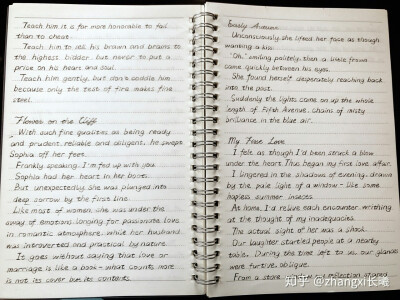 Teach him it is far more honorable to fail
than to cheat.
Teach him to sell his brown and brains to
the highest bidder but never to put a
price on his heart and soul.
Teach him gently, but don't coddle him
because only the test of fire makes fine
steel.
Flower on the Cliff
With such fine qualities as being ready
and prudent, reliable and diligent, he swept
Sophia off her feet.
Frankly speaking, I'm fed up with you.
Sophia had her heart in her boots.
But unexpectedly she was plunged into
deep sorrow by the first line.
Like most of women, she was under the
sway of emotion, longing for passionate love
in romantic atmosphere, while her husband
was introverted and practical by nature.
It goes without saying that love or
marriage is like a book - what counts more
is not its cover but its contents.
Early Autumn
Unconsciously she lifted her face as though
wanting a kiss.
"Oh," smiling politely, then a little frown
came quickly between his eyes.
She found herself desperately reaching back
into the past.
Suddenly the lights came on up the whole
length of Fifth Avenue, chains of misty
brilliance in the blue air.
My First Love
I felt as though I'd been struck a blow
under the heart. Thus began my first love affair.
I lingered in the shadows of evening, drawn
by the pale light of a window - like some
hapless summer insect.
At home, I'd relive each encounter, writhing
at the thought of my inadequacies.
The actual sight of her was a shock.
Our laughter startled people at a nearby
table. During the time left to us, our glances
were furtive, oblique.
From a store window my reflection stared
知乎 @zhangxi长曦